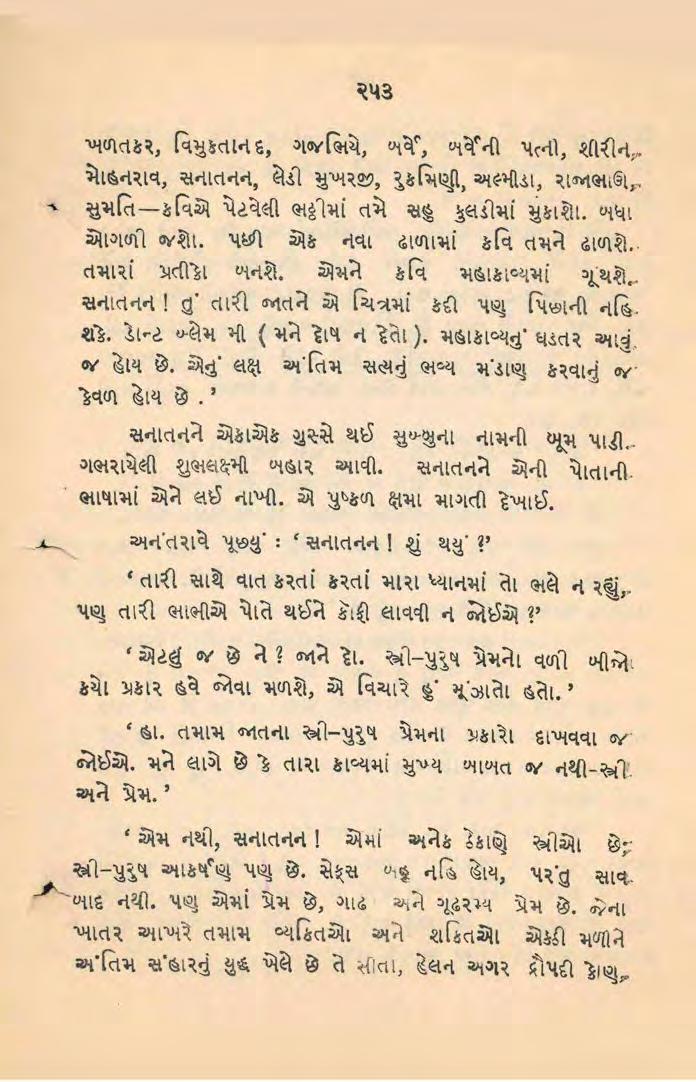 ૨૫૩
ખળતકર, વિમુકતાનંદ, ગજભિયે, બર્વે, બર્વેની પત્ની, શીરીન,
મોહનરાવ, સનાતનન, લેડી મુખરજી, રુકમિણી, અલ્મીડા, રાજાભાઉ,
સુમતિ—કવિએ પેટવેલી ભઠ્ઠીમાં તમે સહુ કુલડીમાં મુકાશો. બધા
ઓગળી જશો. પછી એક નવા ઢાળામાં કવિ તમને ઢાળશે.
તમારાં પ્રતીકો બનશે. એમને કવિ મહાકાવ્યમાં ગૂંથશે.
સનાતનન ! તું તારી જાતને એ ચિત્રમાં કદી પણ પિછાની નહિ
શકે. ડોન્ટ બ્લેમ મી ( મને દોષ ન દેતો ). મહાકાવ્યનું ઘડતર આવું
જ હોય છે. એનું લક્ષ અંતિમ સત્યનું ભવ્ય મંડાણ કરવાનું જ
કેવળ હોય છે .’
સનાતનને એકાએક ગુસ્સે થઈ સુબ્બુના નામની બૂમ પાડી.
ગભરાયેલી શુભલક્ષ્મી બહાર આવી. સનાતનને એની પોતાની
ભાષામાં એને લઈ નાખી. એ પુષ્કળ ક્ષમા માગતી દેખાઈ.
અનંતરાવે પૂછયું : ‘ સનાતનન ! શું થયું ?’
‘ તારી સાથે વાત કરતાં કરતાં મારા ધ્યાનમાં તો ભલે ન રહ્યું,
પણ તારી ભાભીએ પોતે થઈને કૉફી લાવવી ન જોઈએ ?’
‘ એટલું જ છે ને ? જાને દો. સ્ત્રી–પુરુષ પ્રેમનો વળી બીજો
કયો પ્રકાર હવે જોવા મળશે, એ વિચારે હું મૂંઝાતો હતો. ’
‘ હા. તમામ જાતના સ્ત્રી–પુરુષ પ્રેમના પ્રકારો દાખવવા જ
જોઈએ. મને લાગે છે કે તારા કાવ્યમાં મુખ્ય બાબત જ નથી–સ્ત્રી
અને પ્રેમ. ’
‘ એમ નથી, સનાતનન ! એમાં અનેક ઠેકાણે સ્ત્રીઓ છે;
સ્ત્રી–પુરુષ આકર્ષણ પણ છે. સેક્સ બહુ નહિ હોય, પરંતુ સાવ
બાદ નથી. પણ એમાં પ્રેમ છે, ગાઢ અને ગૂઢરમ્ય પ્રેમ છે. જેના
ખાતર આખરે તમામ વ્યકિતઓ અને શકિતઓ એકઠી મળીને
અંતિમ સંહારનું યુદ્ધ ખેલે છે તે સીતા, હેલન અગર દ્રૌપદી કોણ,